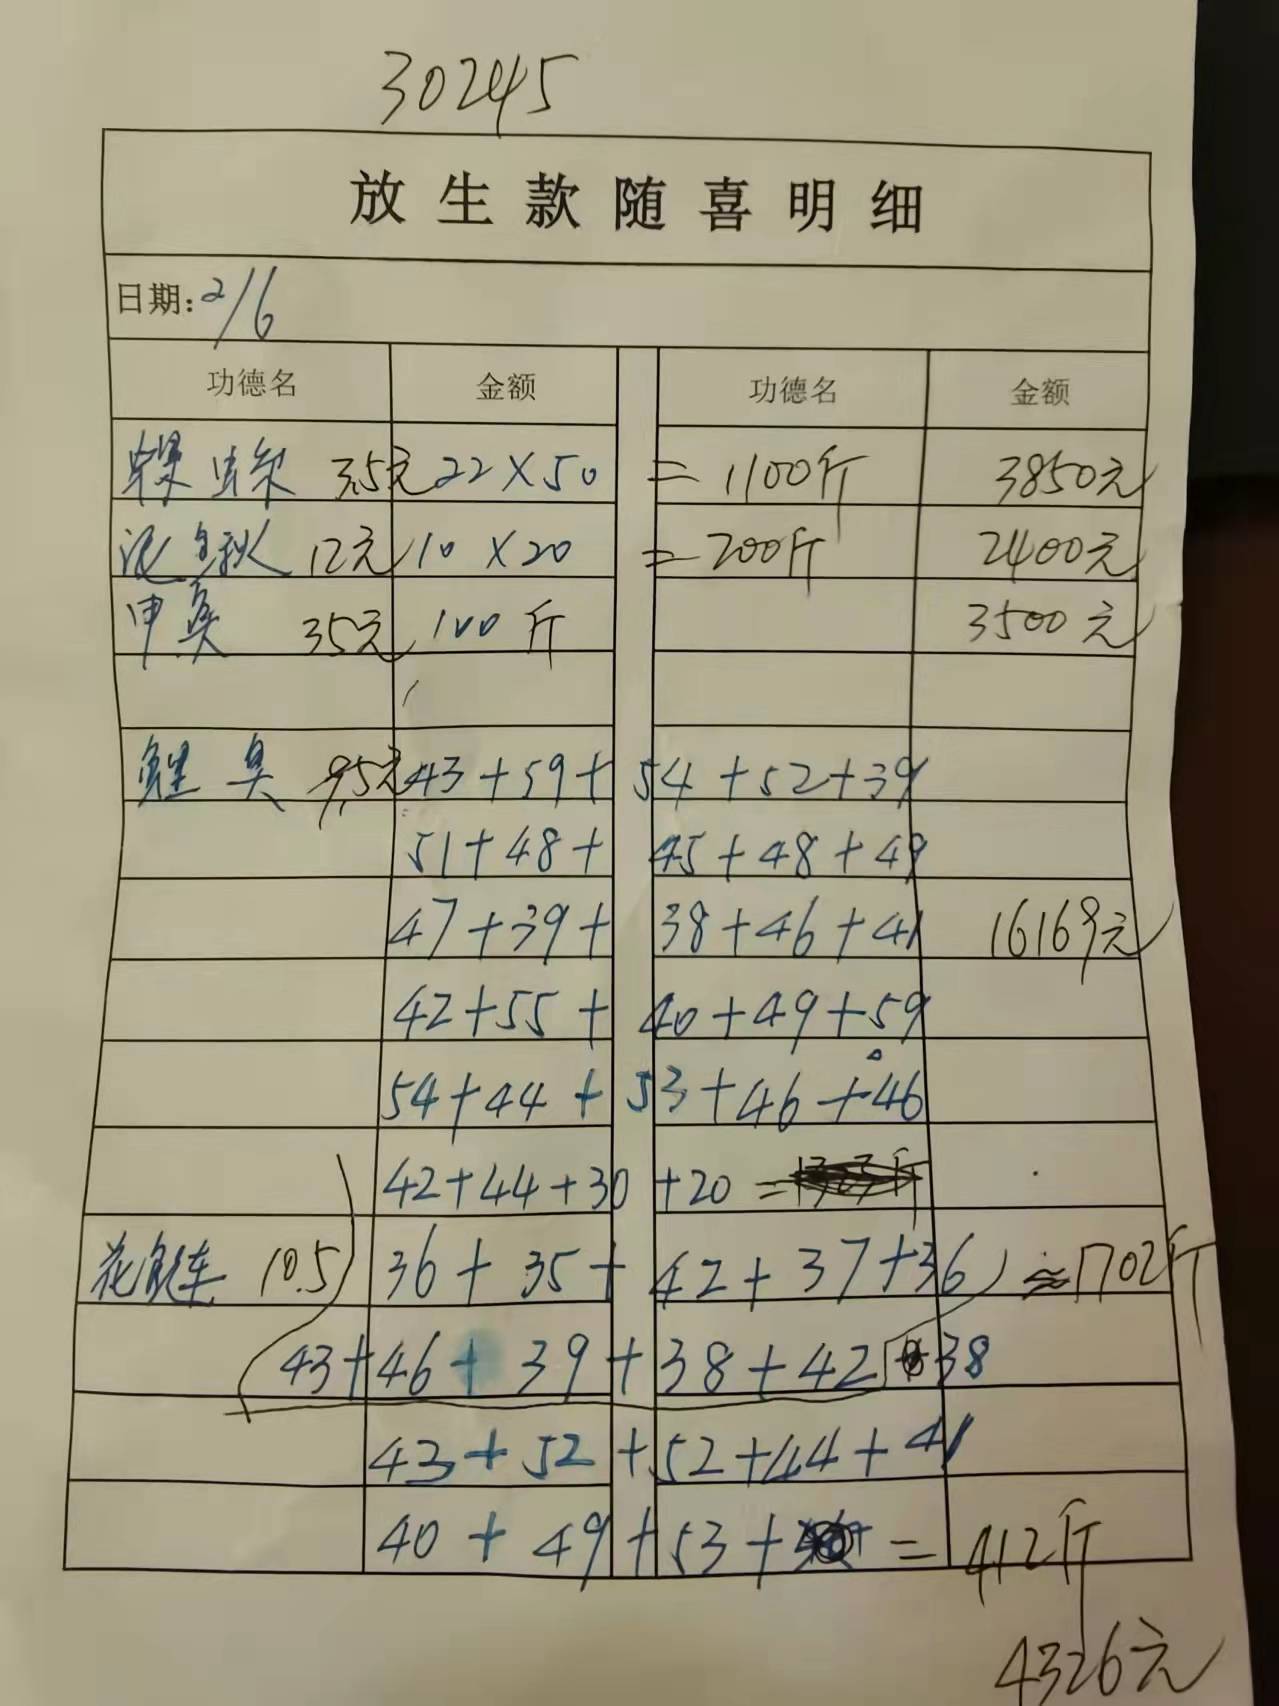 30245
放生款随喜明细
日期: 2/6
功德名 金额 功德名 金额
3.5元 22×50 = 1100斤 3850元
泥鳅 12元 10×20 = 200斤 2400元
甲鱼 35元 100斤 3500元
鲤鱼 9.5元 43+59+54+52+39
51+48+45+48+49
47+39+38+46+41 16169元
42+55+40+49+59
54+44+53+46+46
42+44+30+20=
花鲢 10.5 36+35+42+37+36 ≈1702斤
43+46+39+38+42 38
43+52+52+44+41
40+49+53+ = 412斤
4326元